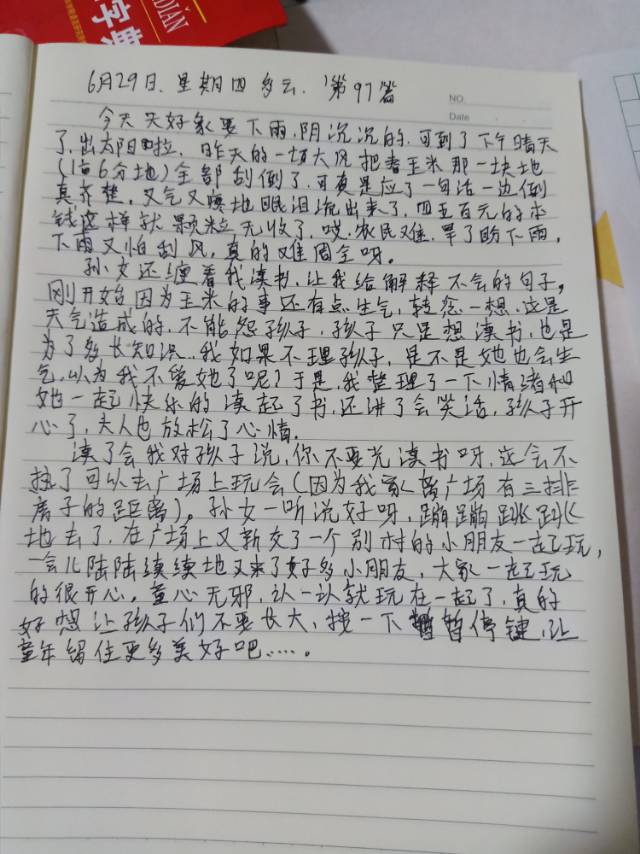 字典
DIAN
6月29日.星期四 多云.第97篇
NO.
Date
今天天好象要下雨,阴沉沉的,可到了下午晴天
了,出太阳啦,昨天的一场大风把春玉米那一块地
(1亩6分地)全部刮倒了,可真是应了一句话一边倒
真齐楚,又气又喷地眼泪流出来了,四五百元的本
钱这样就颗粒无收了,哎,农民难,旱了盼下雨,
下雨又怕刮风,真的难周全呀。
孙女还缠着我读书,让我给解释不会的句子,
刚开始因为玉米的事还有点生气,转念一想,这是
天气造成的,不能怨孩子,孩子只是想读书,也是
为了多长知识,我如果不理孩子,是不是她也会生
气,以为我不爱她了呢?于是,我整理了一下情渚和
她一起快乐的读起了书,还讲了会笑话,孩子开
心了,大人也放松了心情.
读了会我对孩子说,你不要光读书呀,这会不
热了可以去广场上玩会(因为我家离广场有三排
房子的距离)。孙女一听说好呀,蹦蹦跳跳
地去了,在广场上又新交了一个别村的小朋友一起玩,
一会儿陆陆续续地又来了好多小朋友,大家一起玩
的很开心,童心无邪,认一认就玩在一起了,真的
好想让孩子们不要长大,按一下暂停键,让
童年留住更多美好吧……。